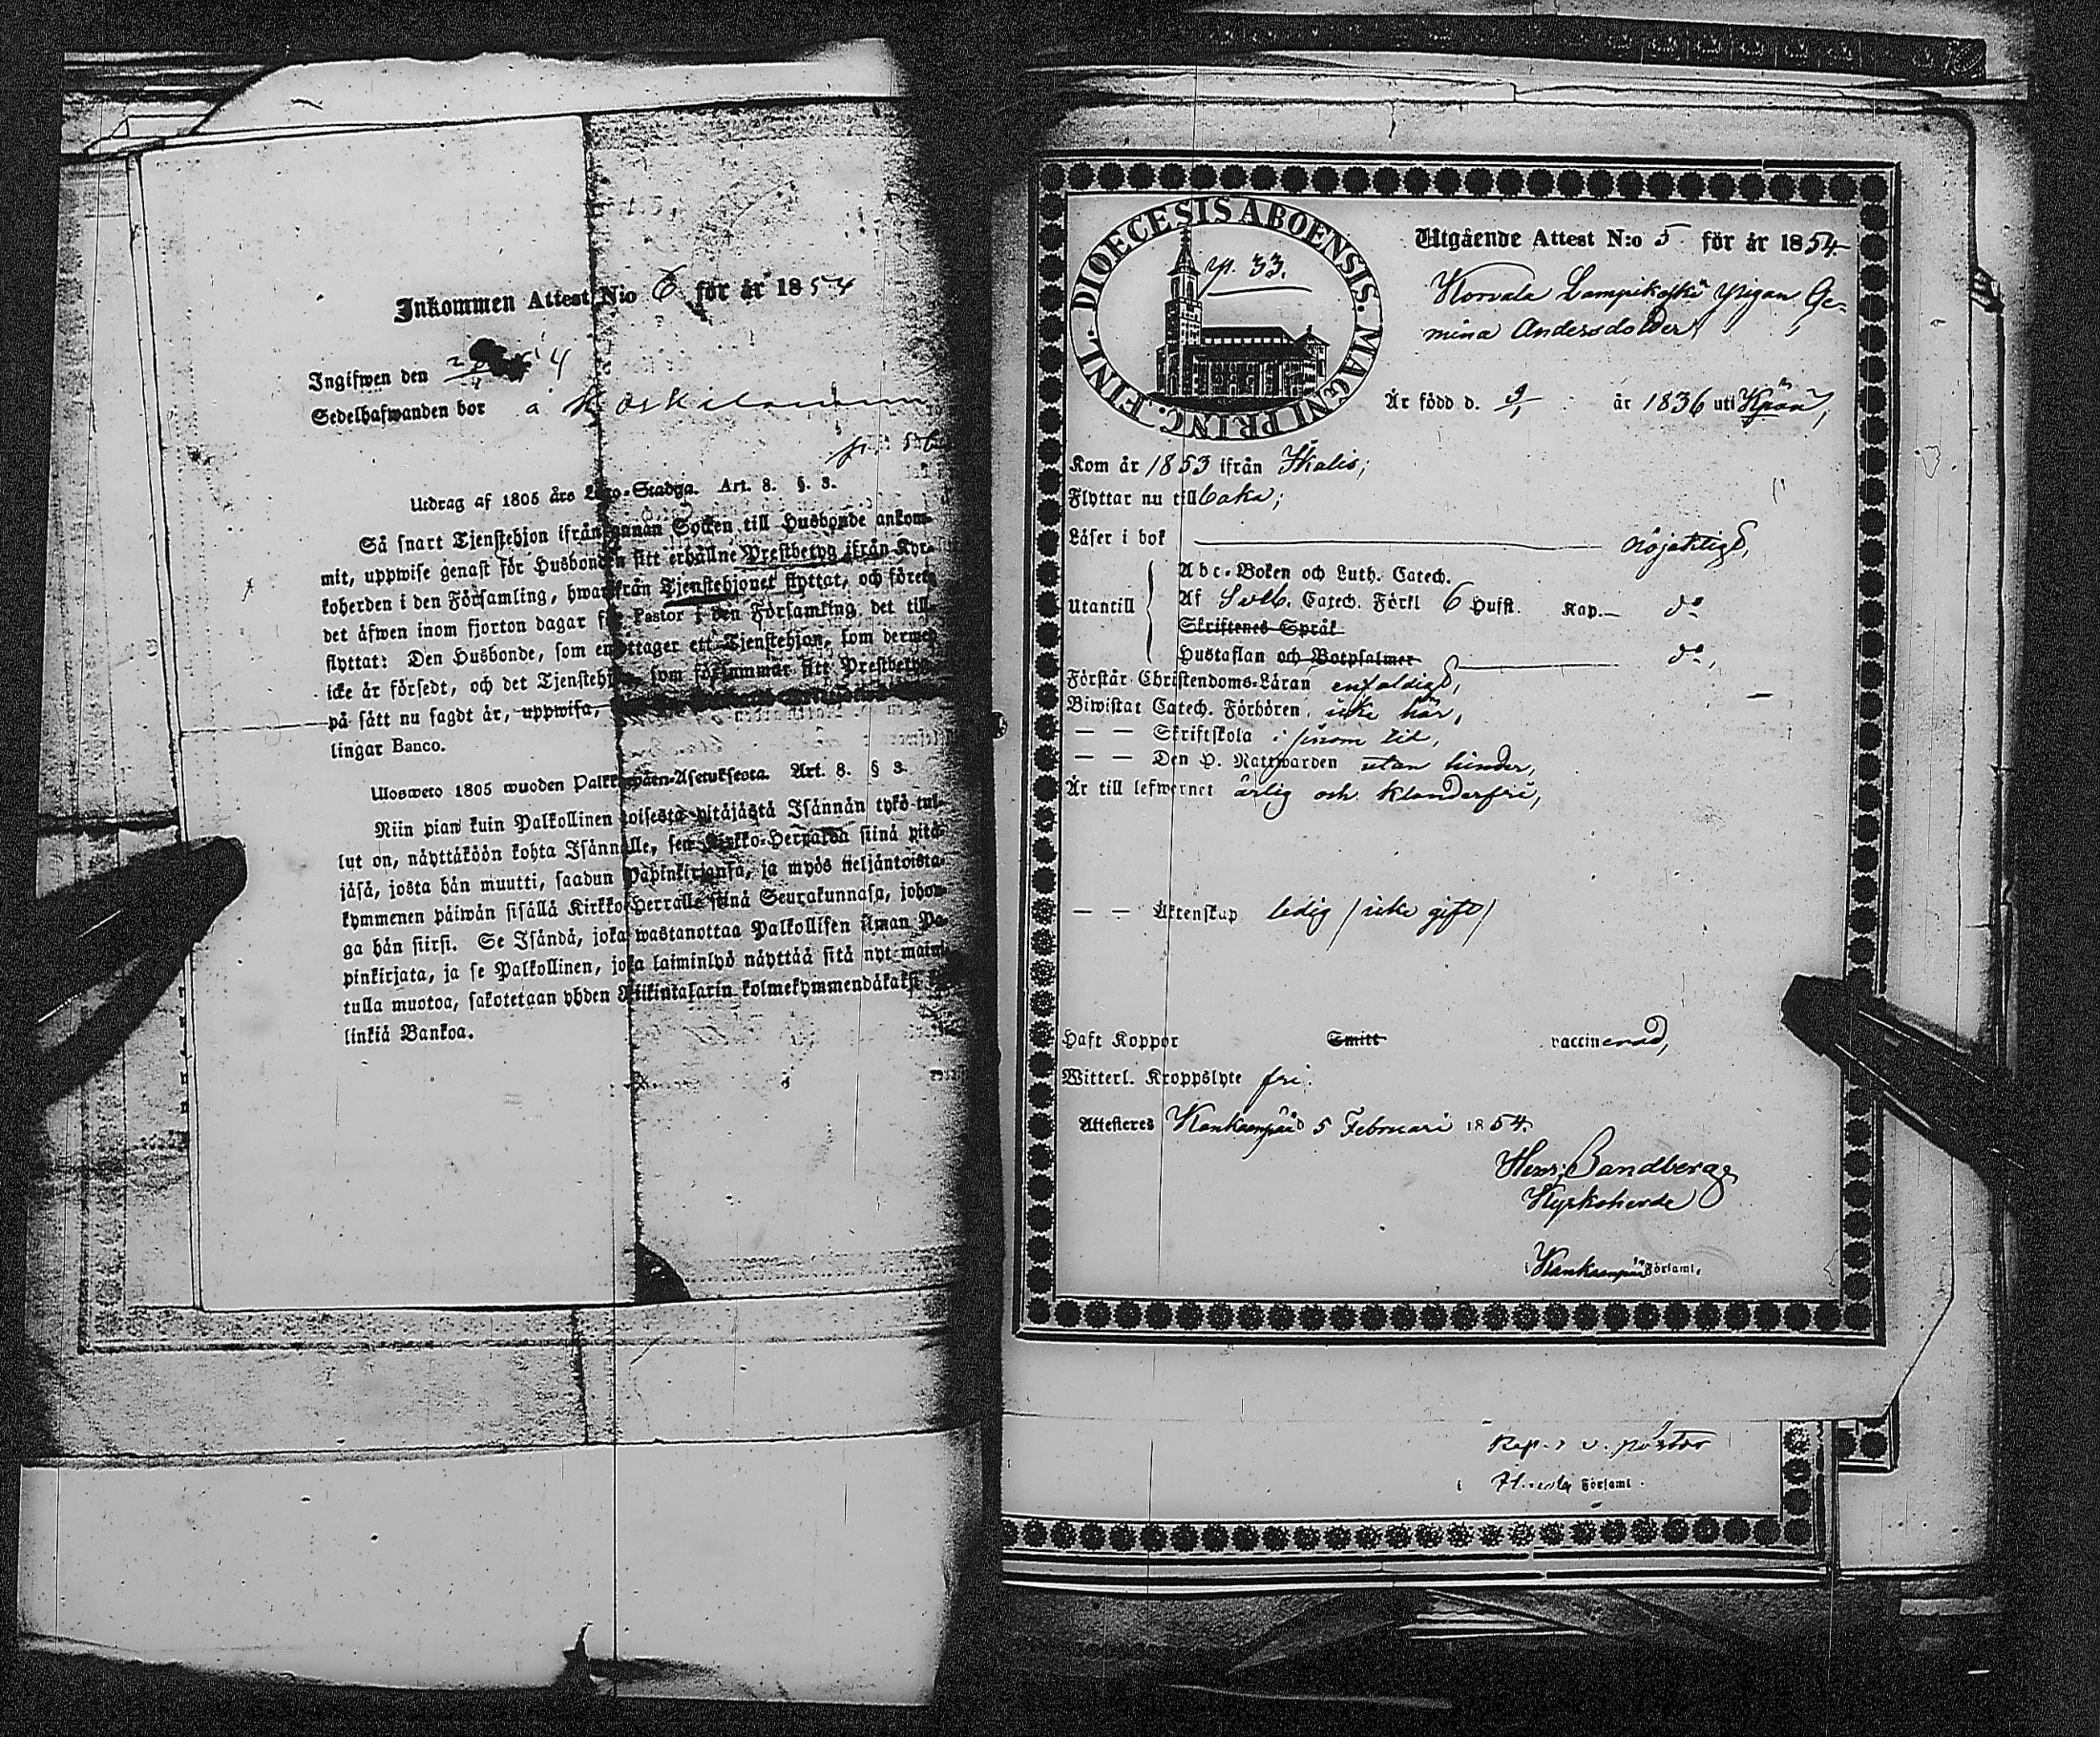 Inkommen Attest N:o 6 för år 1854
Ingifwen den
Sedelhafwanden bor å
Utdrag af 1805 års Lego-Stadga. Art. 8. §. 3.
Så snart Tjenstehjon ifrån annan Socken till Husbonde ankom-
mit, uppwise genast för Husbonden sitt erhållne Prestbetyg ifrån Kyr-
koherden i den Församling, hwarifrån Tjenstehjonet flyttat, och förete
det äfwen inom fjorton dagar för Pastor i den Församling, det till-
flyttat: Den Husbonde, som emottager ett Tjenstehjon, som dermed
icke är försedt, och det Tjenstehjon, som försummar sitt Prestbetyg
på sätt nu sagdt är, uppwisa,
lingar Banco.
Ulosweto 1805 wuoden Palkkawäen-Asetuksesta. Art. 8. § 3.
Niin pian kuin Palkollinen toisesta pitäjästä Isännän tykö tul-
lut on, näyttäköön kohta Isännälle, sen Kirkko-Herralda siinä pitä-
jäsä, josta hän muutti, saadun Papinkirjansa, ja myös neljäntoista-
kymmenen päiwän sisällä Kirkko-Herralle siinä Seurakunnasa, johon-
ga hän siirsi. Se Isändä, joka wastanottaa Palkollisen ilman Pa-
pinkirjata, ja se Palkollinen, joka laiminlyö näyttää sitä nyt-mainit-
tulla muotoa, sakotetaan yhden Riikintalarin kolmekymmendäkaksi
linkiä Bankoa.
DIOECESIS ABOENSIS. MAGNI PRINC. FINL.
p. 33.
Utgående Attest N:o 5 för år 1854.
Korvala Lampikoski pigan Ge-
mina Andersdotter,
Är född d. 9/1 år 1836 uti
Kom år 1853 ifrån Ikalis;
Flyttar nu tillbaka;
Läser i bok nöjaktigt,
Utantill
Abc-Boken och Luth. Catech.
Af Sveb. Catech. Förkl 6 Hufst. Kap.— do
Skriftenes Språk
Hustaflan och Botpsalmer do,
Förstår Christendoms-Läran enfaldigt,
Biwistat Catech. Förhören icke här,
— — Skriftskola
— — Den H. Nattwarden utan hinder,
Är till lefwernet ärlig och klanderfri,
— — Äktenskap ledig /icke gift/
Haft Koppor Smitt vaccinerad,
Witterl. Kroppslyte fri.
Attesteras Kankaanpää 5 Februari 1854.
Henr. Sandberg
Kyrkoherde
i Kankaanpää Församl.
Kap. v. pastor
i Församl.